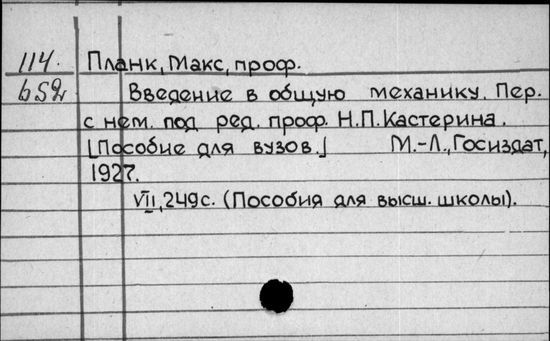 114. Планк, Макс, проф.
Введение в общую механику. Пер.
с нем. под ред. проф. Н.П.Кастерина.
[Пособие для вузов.] М.-Л., Госиздат,
1927.
VII, 249с. (Пособия для высш. школы).